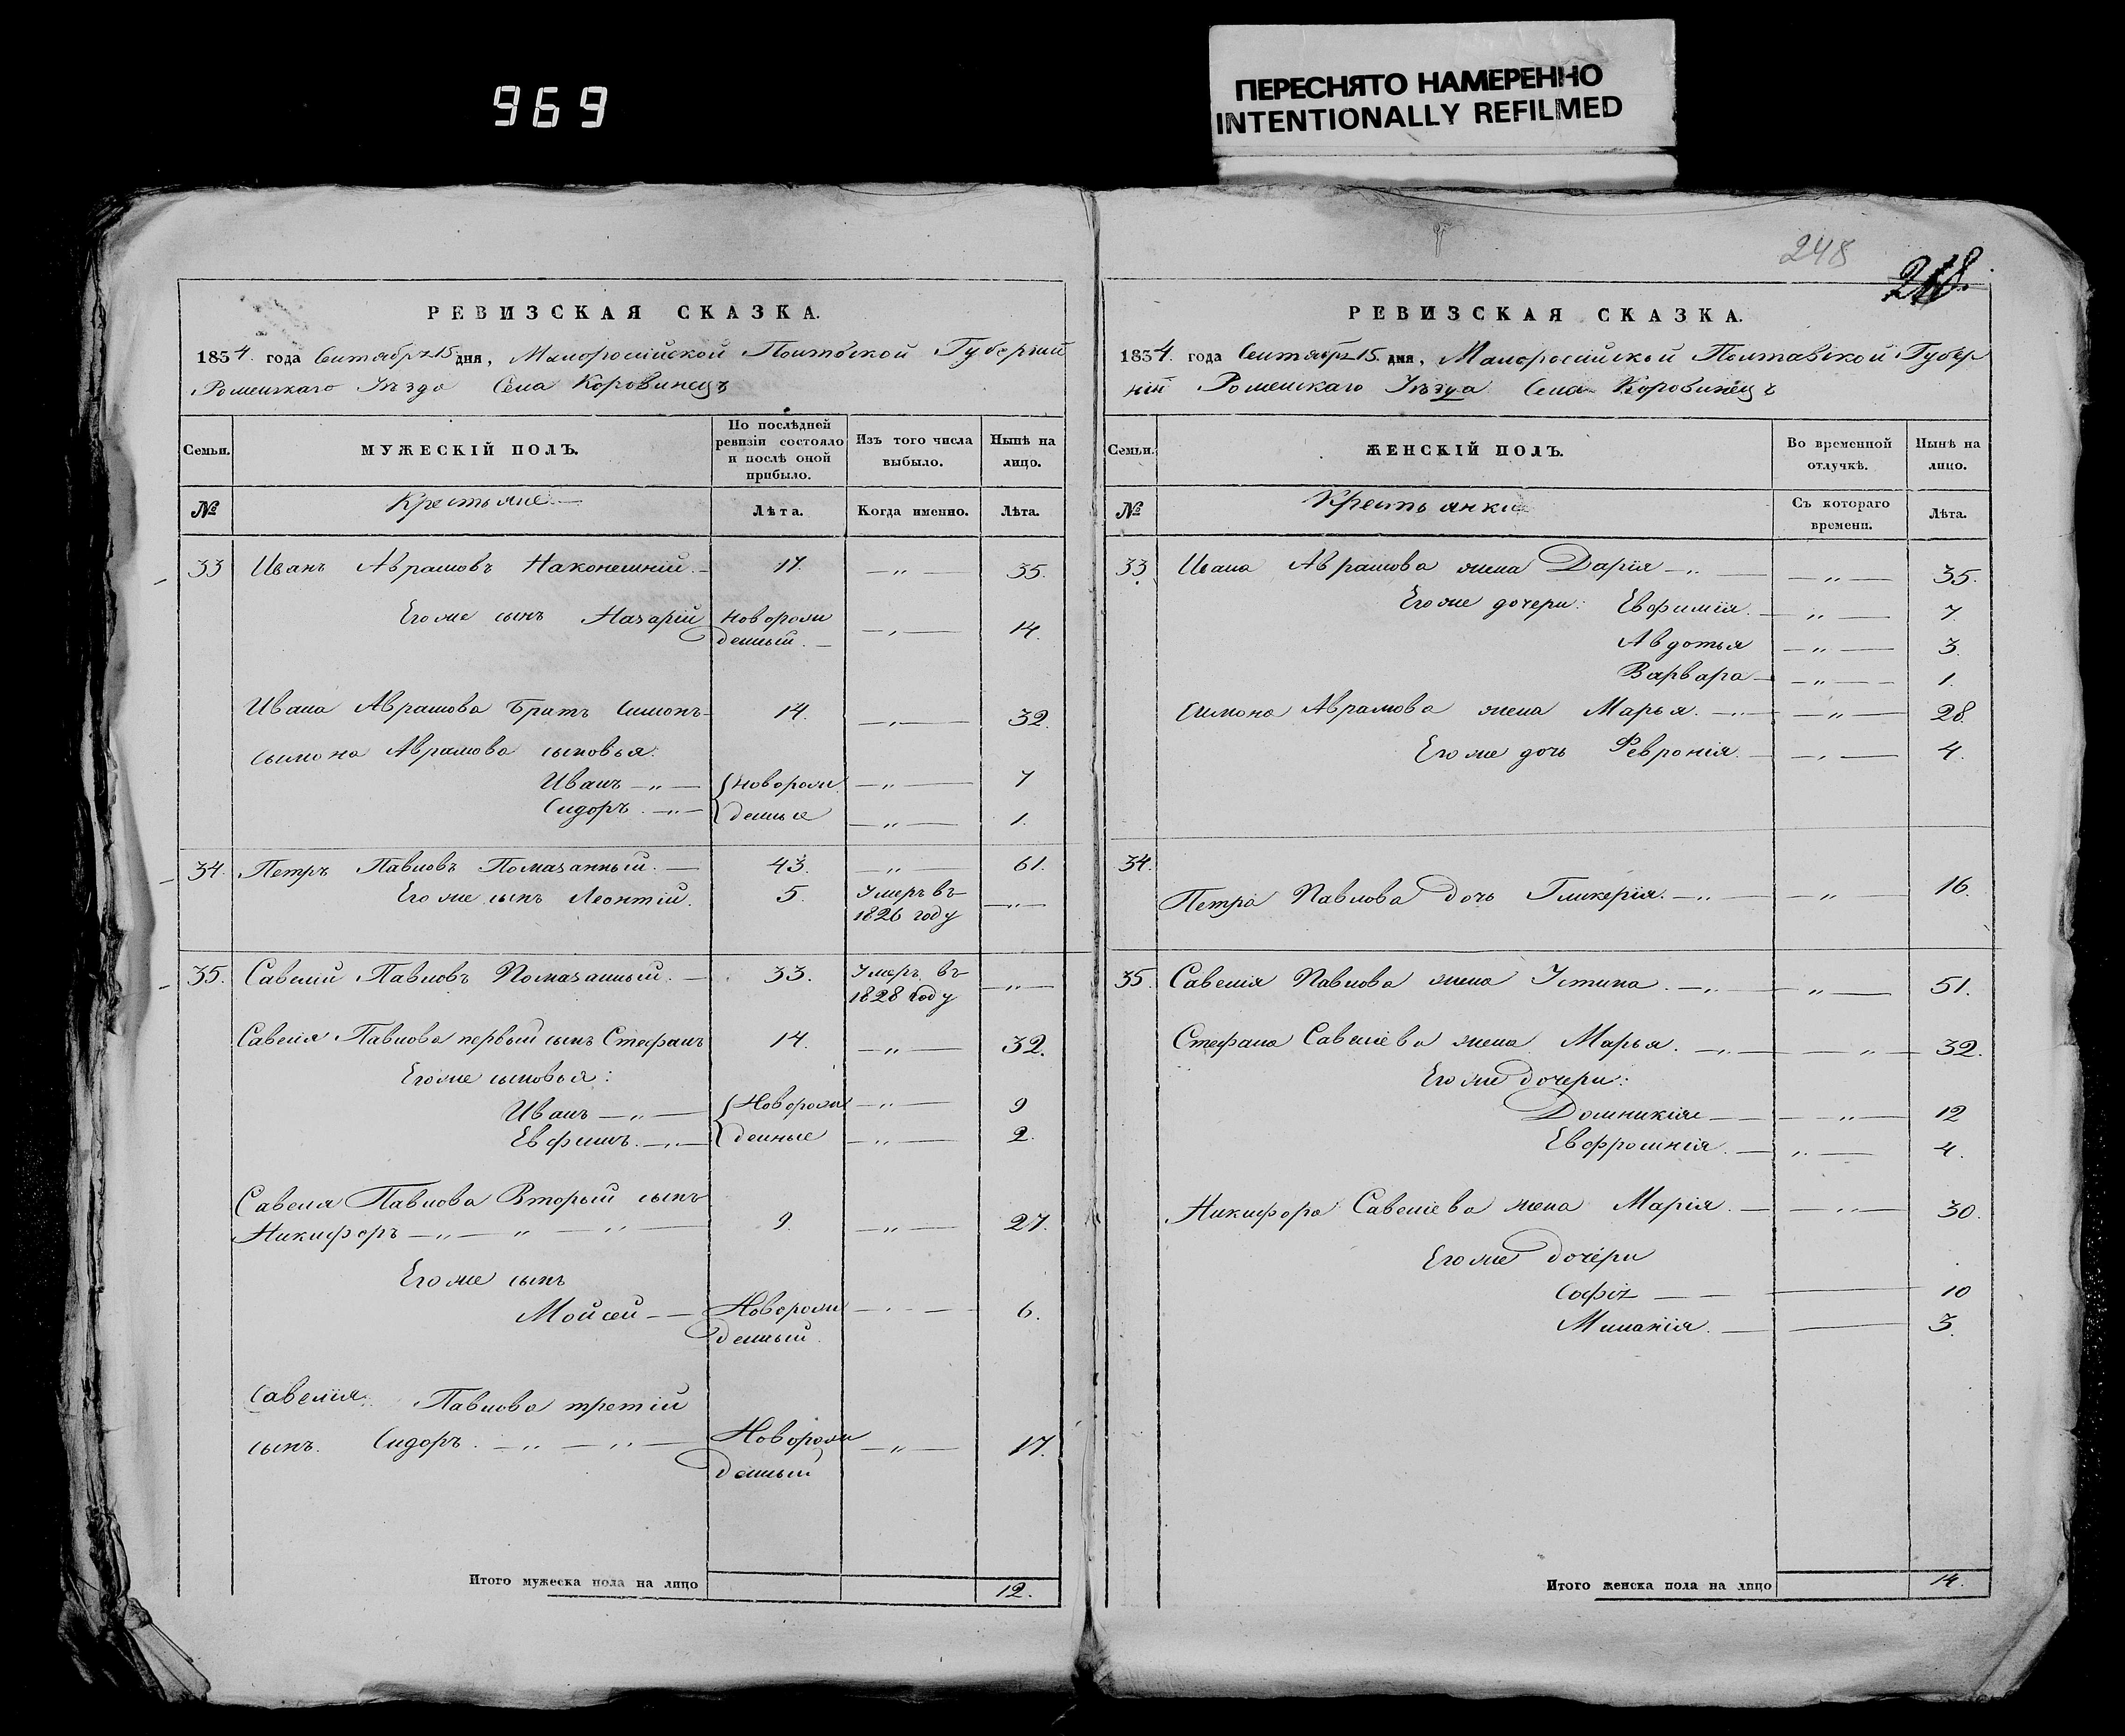 969
ПЕРЕСНЯТО НАМЕРЕННО
INTENTIONALLY REFILMED
248
РЕВИЗСКАЯ СКАЗКА.
1834. года Сентября 15 дня, Малоросійской Полтавской Губерніи
Роменскаго Уѣзда Села Коровинецъ
Семьи.
МУЖЕСКІЙ ПОЛЪ.
По послѣдней ревизіи состояло и послѣ оной прибыло.
Изъ того числа выбыло.
Нынѣ на лицо.
№
Крестьяне
Лѣта.
Когда именно.
Лѣта.
33 Иванъ Аврамовъ Наконешній. 17. — „ — 35.
Его же сынъ Назарій новорож
денный. — „ — 14.
Ивана Аврамова братъ Симонъ 14. — „ — 32.
Симона Аврамова сыновья:
Иванъ — „ — новорож — „ — 7
Сидоръ. — „ — денные — „ — 1.
34. Петръ Павловъ Помазанный. — 43. — „ — 61.
Его же сынъ Леонтій. 5. Умеръ въ
1826 году — „ —
35. Савелій Павловъ Помазанный. — 33. Умеръ въ
1828 году — „ —
Савелія Павлова первый сынъ Стефанъ 14. — „ — 32.
Его же сыновья:
Иванъ — „ — Новорож — „ — 9
Евфимъ. — „ — денные — „ — 2.
Савелія Павлова Вторый сынъ
Никифоръ — „ — „ — „ — 9. — „ — 27.
Его же сынъ
Мойсей — Новорож — „ — 6.
денный.
Савелія Павлова третій
сынъ. Сидоръ. — „ — „ — Новорож — „ — 17.
денный
Итого мужеска пола на лицо 12.
РЕВИЗСКАЯ СКАЗКА.
1834. года Сентября 15. дня, Малоросійской Полтавской Губер
ніи Роменскаго Уѣзда Села Коровинецъ
Семьи.
ЖЕНСКІЙ ПОЛЪ.
Во временной отлучкѣ.
Нынѣ на лицо.
№
Крестьянки
Съ котораго времени.
Лѣта.
33. Ивана Аврамова жена Дарія — „ — — „ — 35.
Его же дочери: Евфимія. — „ — 7.
Авдотья — „ — 3.
Варвара — „ — 1.
Симона Аврамова жена Марья. — „ — — „ — 28.
Его же дочь Февронія. — „ — 4.
34.
Петра Павлова дочь Гликерія. — „ — — „ — 16.
35. Савелія Павлова жена Устина. — „ — — „ — 51.
Стефана Савеліева жена Марья. — „ — — „ — 32.
Его же дочери:
Домникія — — „ — 12
Евфросинія. — „ — 4.
Никифора Савеліева жена Марія. — — „ — 30.
Его же дочери
Софія — — 10
Миланія. — — 3.
Итого женска пола на лицо 14.